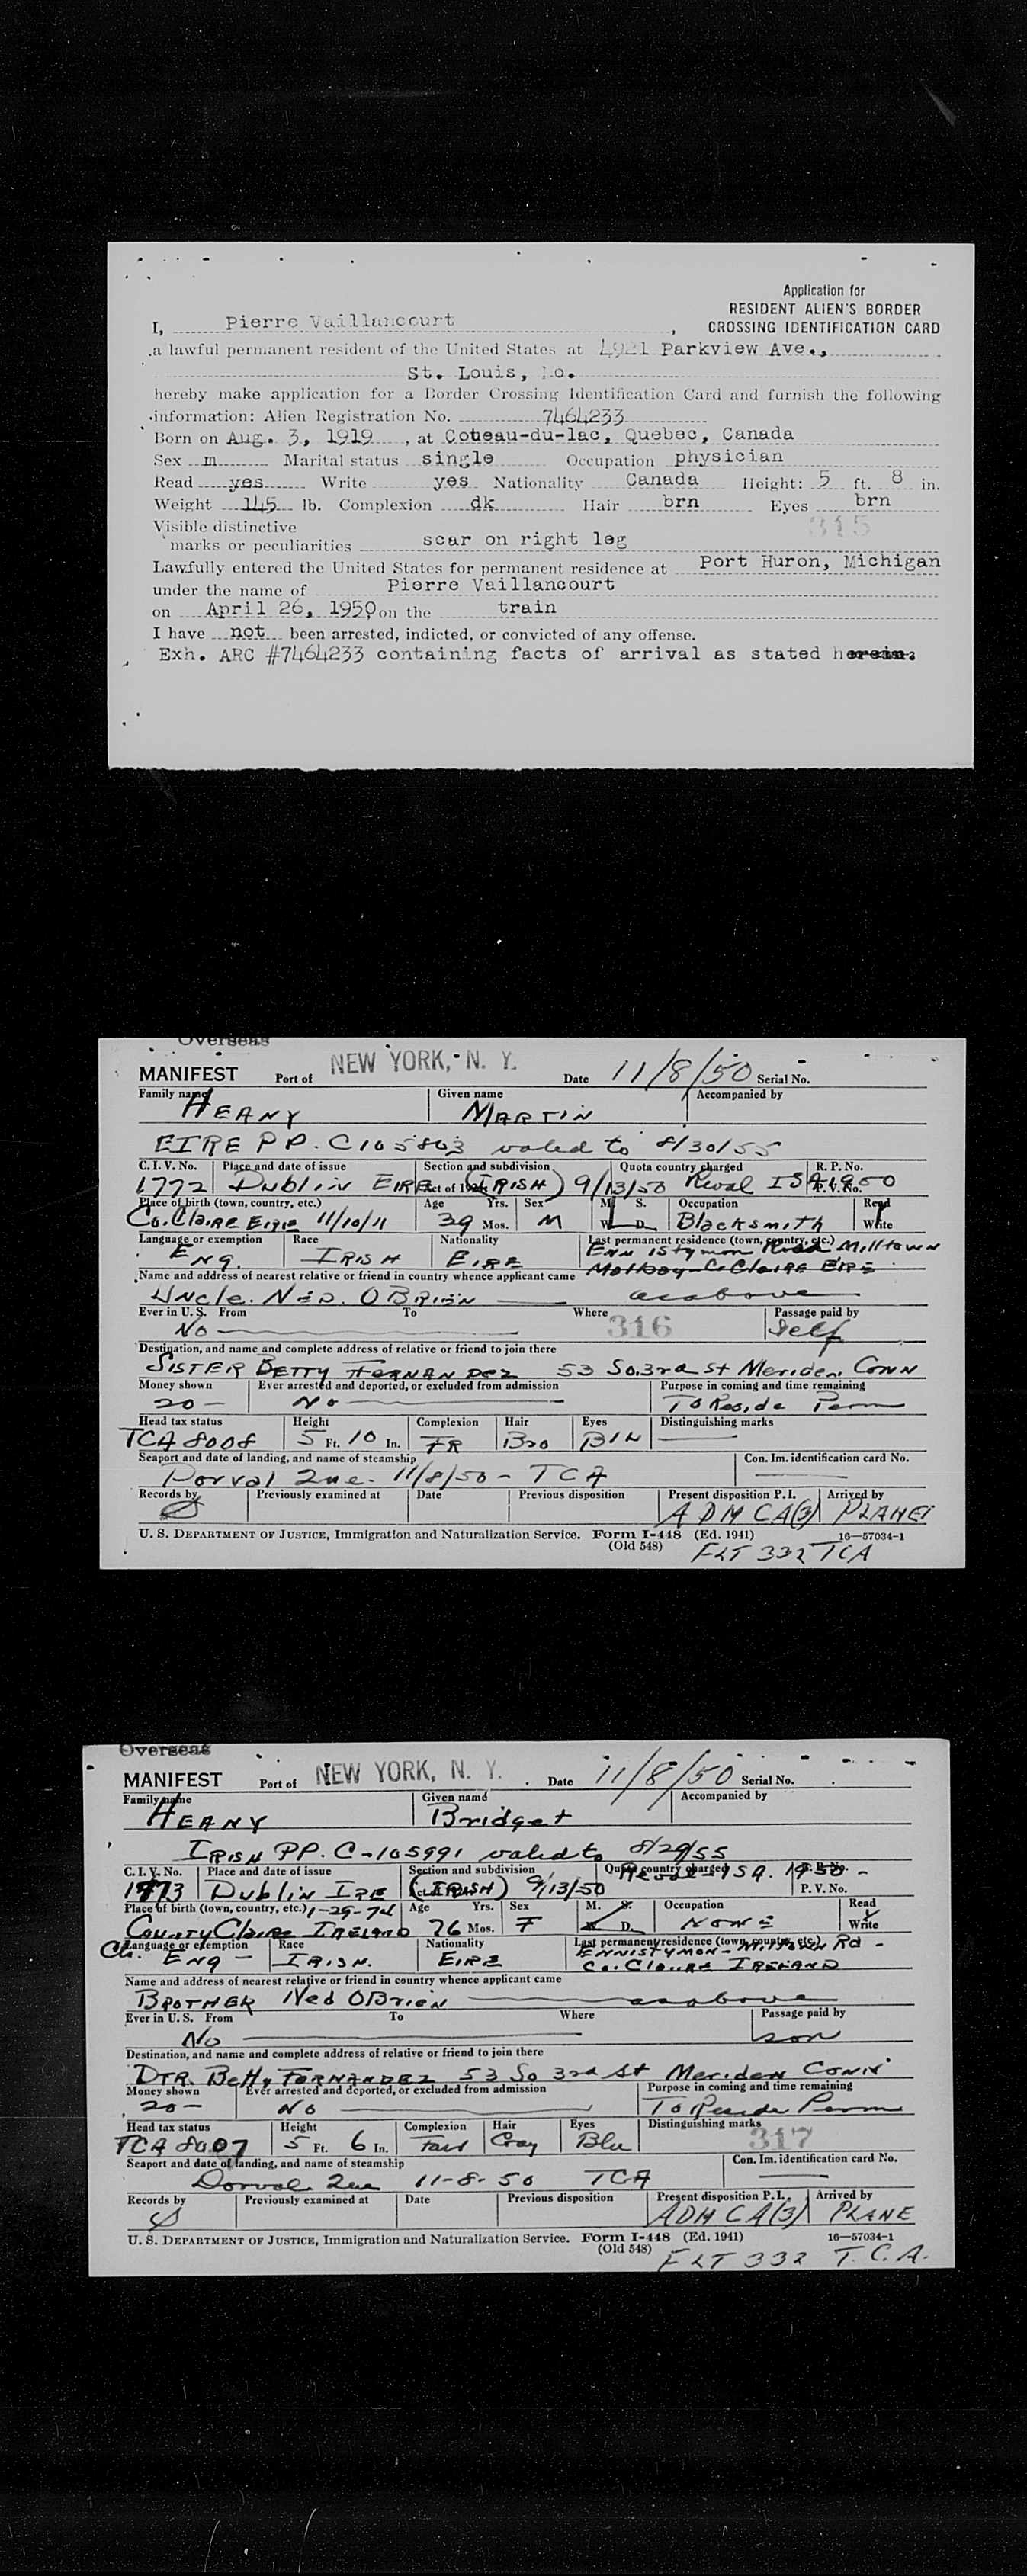 Application for
RESIDENT ALIEN'S BORDER
CROSSING IDENTIFICATION CARD
I, Pierre Vaillancourt ,
a lawful permanent resident of the United States at 4921 Parkview Ave.,
St. Louis, Mo.
hereby make application for a Border Crossing Identification Card and furnish the following
information: Alien Registration No. 7464233
Born on Aug. 3, 1919 , at Coteau-du-lac, Quebec, Canada
Sex m Marital status single Occupation physician
Read yes Write yes Nationality Canada Height: 5 ft. 8 in.
Weight 145 lb. Complexion dk Hair brn Eyes brn
315
Visible distinctive
marks or peculiarities scar on right leg
Lawfully entered the United States for permanent residence at Port Huron, Michigan
under the name of Pierre Vaillancourt
on April 26, 1950, on the train
I have not been arrested, indicted, or convicted of any offense.
Exh. ARC #7464233 containing facts of arrival as stated herein.
Overseas
MANIFEST Port of NEW YORK, N. Y. Date 11/8/50 Serial No.
Family name Given name Accompanied by
HEANY MARTIN
EIRE PP. C105803 valed to 8/30/55
C. I. V. No. Place and date of issue Section and subdivision Quota country charged R. P. No.
1772 Dublin EIRE (IRISH) 9/13/50 ISA 1950 P. V. No.
Place of birth (town, country, etc.) Age Yrs. Sex M. S. Occupation Read
Co. Claire Eire 11/10/11 39 Mos. M W. D. Blacksmith Write
Language or exemption Race Nationality Last permanent residence (town, country, etc.)
Eng. IRISH EIRE Ennistymon Road Milltown
Malbay Co Claire EIRE
Name and address of nearest relative or friend in country whence applicant came
Uncle. Ned. OBrien as above
Ever in U. S. From To Where Passage paid by
No 316 Self
Destination, and name and complete address of relative or friend to join there
SISTER BETTY FERNANDEZ 53 So. 3rd St Meriden CONN
Money shown Ever arrested and deported, or excluded from admission Purpose in coming and time remaining
20- No To Reside Perm
Head tax status Height Complexion Hair Eyes Distinguishing marks
TCA 8008 5 Ft. 10 In. FR Bro Blu
Seaport and date of landing, and name of steamship Con. Im. identification card No.
Dorval Que. 11/8/50 - TCA
Records by Previously examined at Date Previous disposition Present disposition P. I. Arrived by
ADM CA(3) PLANE
U. S. DEPARTMENT OF JUSTICE, Immigration and Naturalization Service. Form I-448 (Ed. 1941) 16—57034-1
(Old 548) FLT 332 TCA
Overseas
MANIFEST Port of NEW YORK, N. Y. Date 11/8/50 Serial No.
Family name Given name Accompanied by
HEANY Bridget
IRISH PP. C-105991 valed to 8/29/55
C. I. V. No. Place and date of issue Section and subdivision Quota country charged R. P. No.
1773 Dublin IRE (IRISH) 9/13/50 ISA. 1950 - P. V. No.
Place of birth (town, country, etc.) 1-29-74 Age Yrs. Sex M. S. Occupation Read
County Claire IRELAND 76 Mos. F W. D. NONE Write
Language or exemption Race Nationality Last permanent residence (town, country, etc.)
Eng - IRISH. EIRE ENNISTYMON - Milltown Rd -
Co. Claire IRELAND
Name and address of nearest relative or friend in country whence applicant came
BROTHER Ned OBrien as above
Ever in U. S. From To Where Passage paid by
No son
Destination, and name and complete address of relative or friend to join there
DTR. Betty FERNANDEZ 53 So 3rd St Meriden Conn
Money shown Ever arrested and deported, or excluded from admission Purpose in coming and time remaining
20- No To Reside Perm
Head tax status Height Complexion Hair Eyes Distinguishing marks
TCA 8007 5 Ft. 6 In. Fair Gray Blu 317
Seaport and date of landing, and name of steamship Con. Im. identification card No.
Dorval Que 11-8-50 TCA
Records by Previously examined at Date Previous disposition Present disposition P. I. Arrived by
ADM CA(3) PLANE
U. S. DEPARTMENT OF JUSTICE, Immigration and Naturalization Service. Form I-448 (Ed. 1941) 16—57034-1
(Old 548) FLT 332 T.C.A.